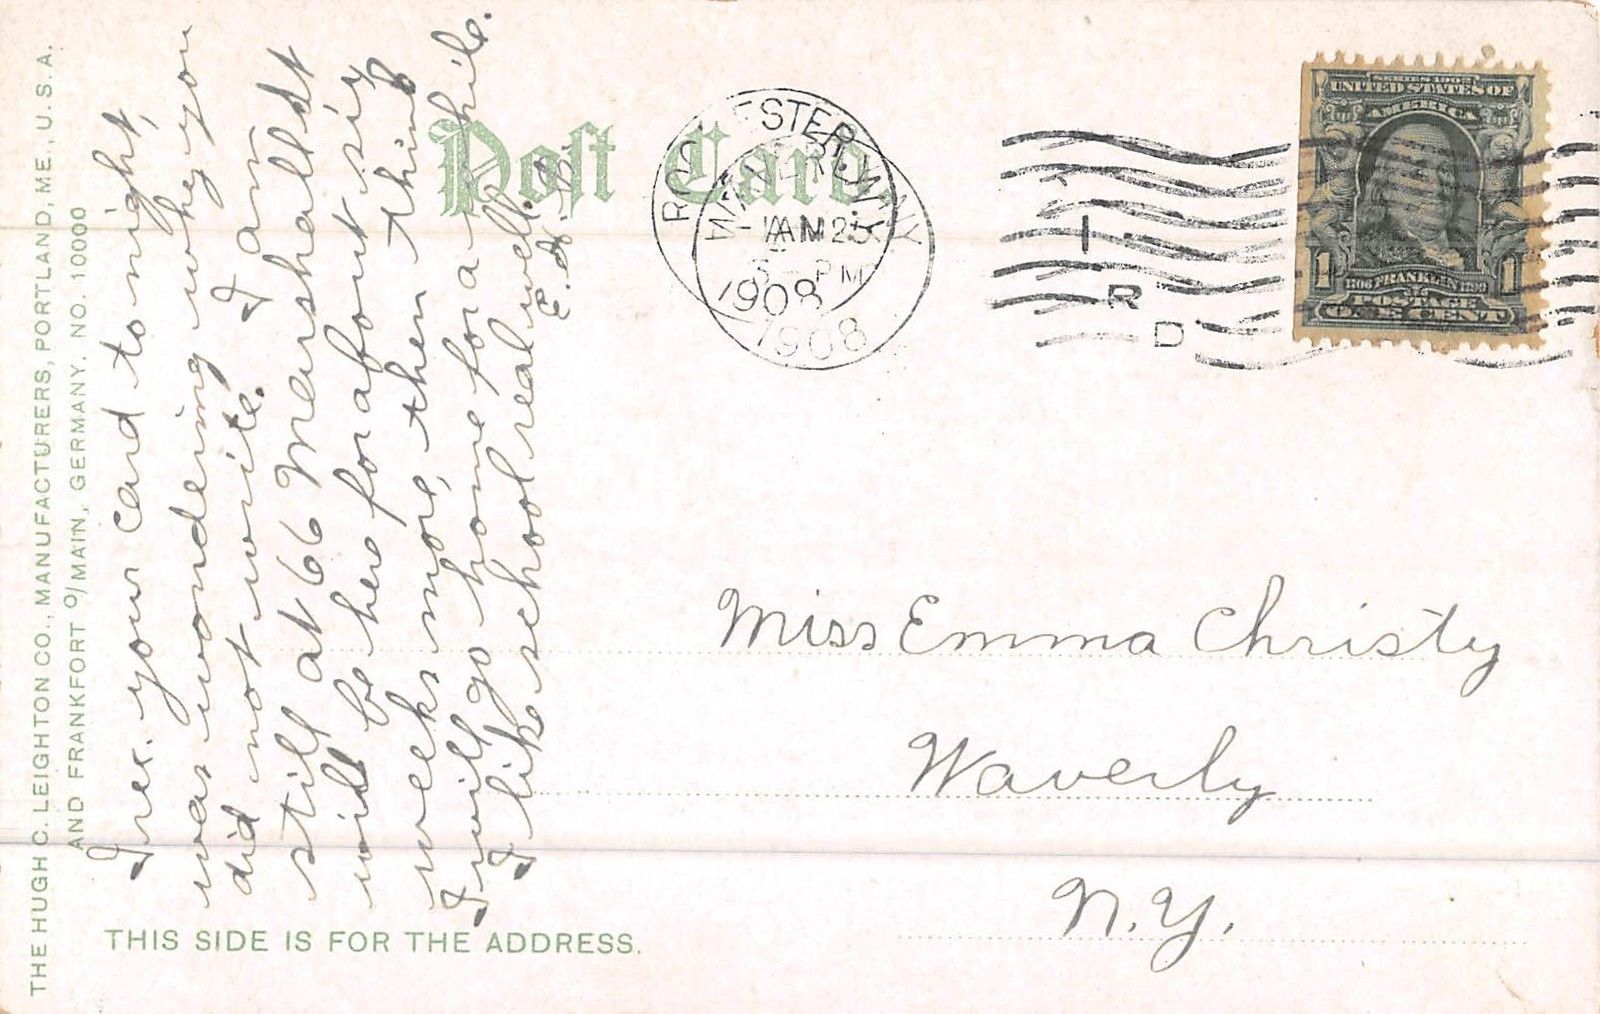 THE HUGH C. LEIGHTON CO., MANUFACTURERS, PORTLAND, ME., U.S.A.
AND FRANKFORT O/MAIN, GERMANY. NO. 10000
I rec. your card to night,
was wondering why you
did not write. I am
still at 66 Meushalldt
will be here for about six
weeks more, then think
I will go home for a while.
I like school real well.
E. H. B.
Post Card
ROCHESTER, N.Y.
WAVERLY, N.Y.
PM
1908
1908
I
R
D
SERIES 1902
UNITED STATES OF
AMERICA
1 1
1706 FRANKLIN 1790
POSTAGE
ONE CENT
Miss Emma Christy
Waverly
N.Y.
THIS SIDE IS FOR THE ADDRESS.